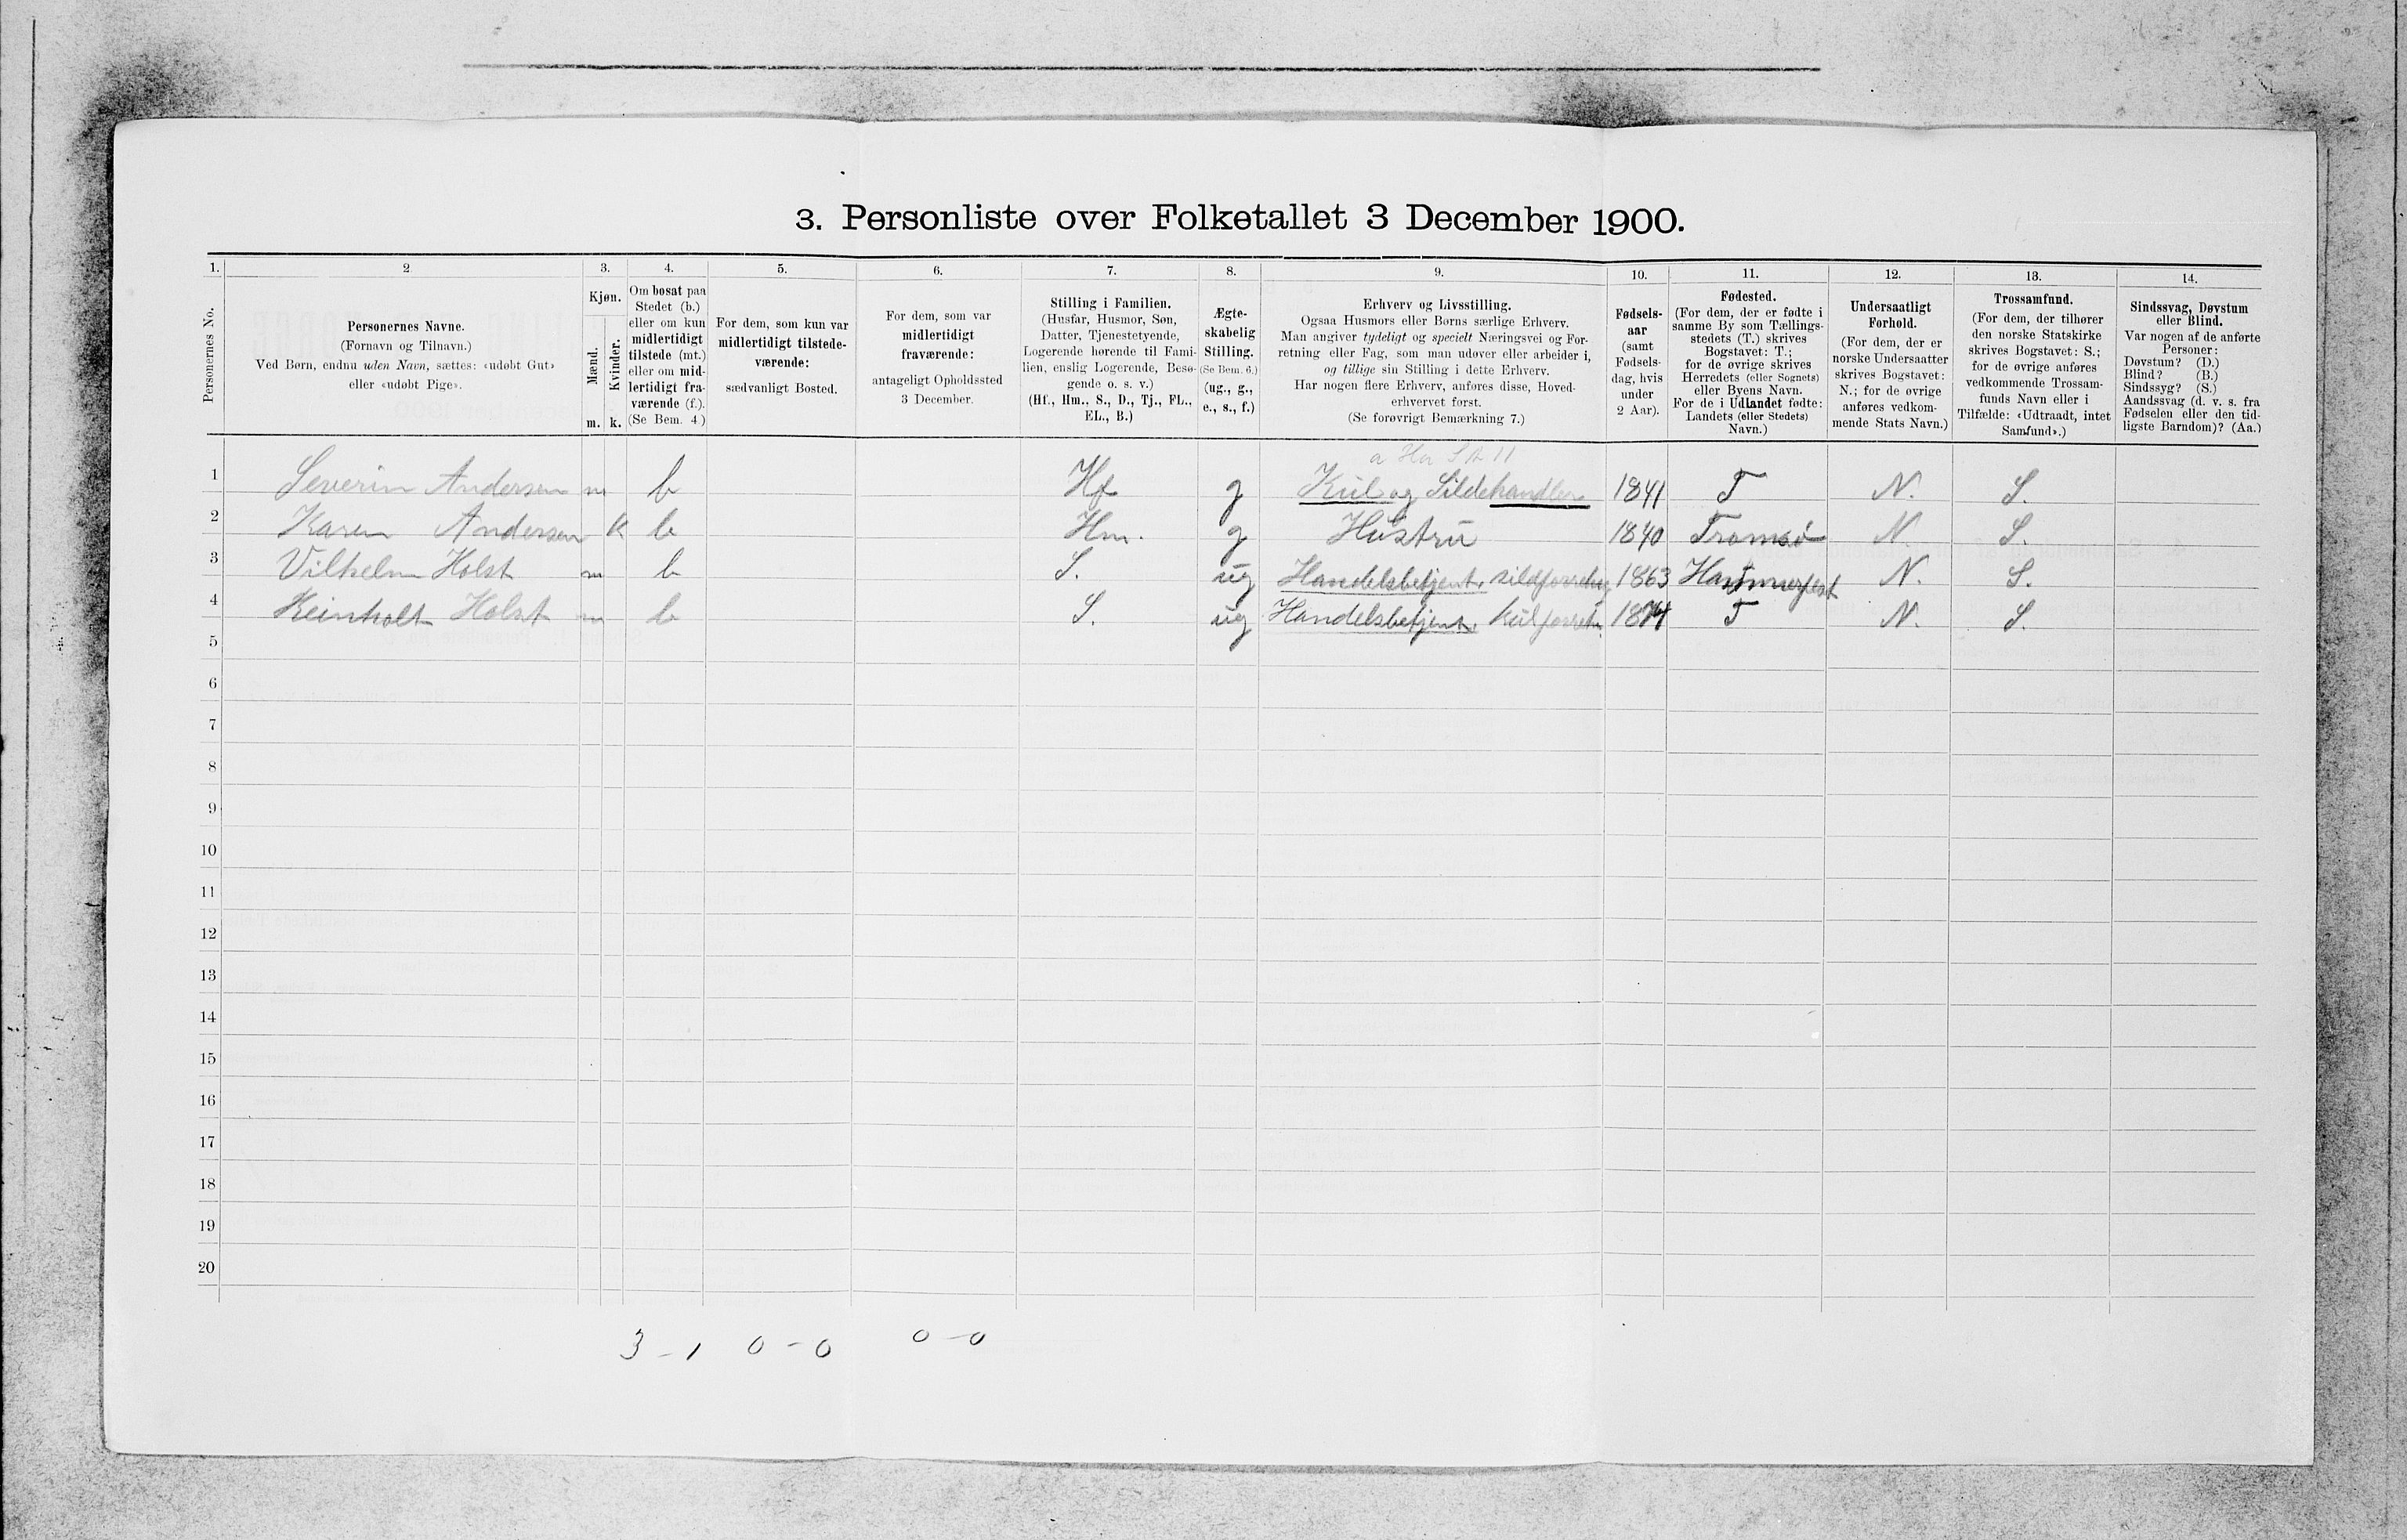 3. Personliste over Folketallet 3 December 1900.
1. 2 3. 4. 5. 6. 7. 8. 9. 10. 11. 12. 13. 14.
Personernes No.
Personernes Navne.
(Fornavn og Tilnavn.)
Ved Børn, endnu uden Navn, sættes: «udøbt Gut»
eller «udøbt Pige».
Kjøn.
Mænd.
Kvinder.
m. k.
Om bosat paa
Stedet (b.)
eller om kun
midlertidigt
tilstede (mt.)
eller om mid-
lertidigt fra-
værende (f.).
(Se Bem. 4.)
For dem, som kun var
midlertidigt tilstede-
værende:
sædvanligt Bosted.
For dem, som var
midlertidigt
fraværende:
antageligt Opholdssted
3 December.
Stilling i Familien.
(Husfar, Husmor, Søn,
Datter, Tjenestetyende,
Logerende hørende til Fami-
lien, enslig Logerende, Besø-
gende o. s. v.)
(Hf., Hm., S., D., Tj., FL.,
EL., B.)
Ægte-
skabelig
Stilling.
(Se Bem. 6.)
(ug., g.,
e., s., f.)
Erhverv og Livsstilling.
Ogsaa Husmors eller Børns særlige Erhverv.
Man angiver tydeligt og specielt Næringsvei og For-
retning eller Fag, som man udøver eller arbeider i,
og tillige sin Stilling i dette Erhverv.
Har nogen flere Erhverv, anføres disse, Hoved-
erhvervet først.
(Se forøvrigt Bemærkning 7.)
Fødsels-
aar
(samt
Fødsels-
dag, hvis
under
2 Aar).
Fødested.
(For dem, der er fødte i
samme By som Tællings-
stedets (T.) skrives
Bogstavet: T.;
for de øvrige skrives
Herredets (eller Sognets)
eller Byens Navn.
For de i Udlandet fødte:
Landets (eller Stedets)
Navn.)
Undersaatligt
Forhold.
(For dem, der er
norske Undersaatter
skrives Bogstavet:
N.; for de øvrige
anføres vedkom-
mende Stats Navn.)
Trossamfund.
(For dem, der tilhører
den norske Statskirke
skrives Bogstavet: S.;
for de øvrige anføres
vedkommende Trossam-
funds Navn eller i
Tilfælde: «Udtraadt, intet
Samfund».)
Sindssvag, Døvstum
eller Blind.
Var nogen af de anførte
Personer:
Døvstum? (D.)
Blind? (B.)
Sindssyg? (S.)
Aandssvag (d. v. s. fra
Fødselen eller den tid-
ligste Barndom)? (Aa.)
1 Severin Andersen m b Hf g Kul og Sildehandler 1841 T N. S.
2 Karen Andersen k b Hm. g Hustru 1840 Tromsø N. S.
3 Vilhelm Holst m b S. ug Handelsbetjent, 1863 Hammerfest N. S.
4 Reinholt Holst m b S. ug Handelsbetjent, 1874 T N. S.
5
6
7
8
9
10
11
12
13
14
15
16
17
18
19
20
3 - 1 0 - 0 0 - 0